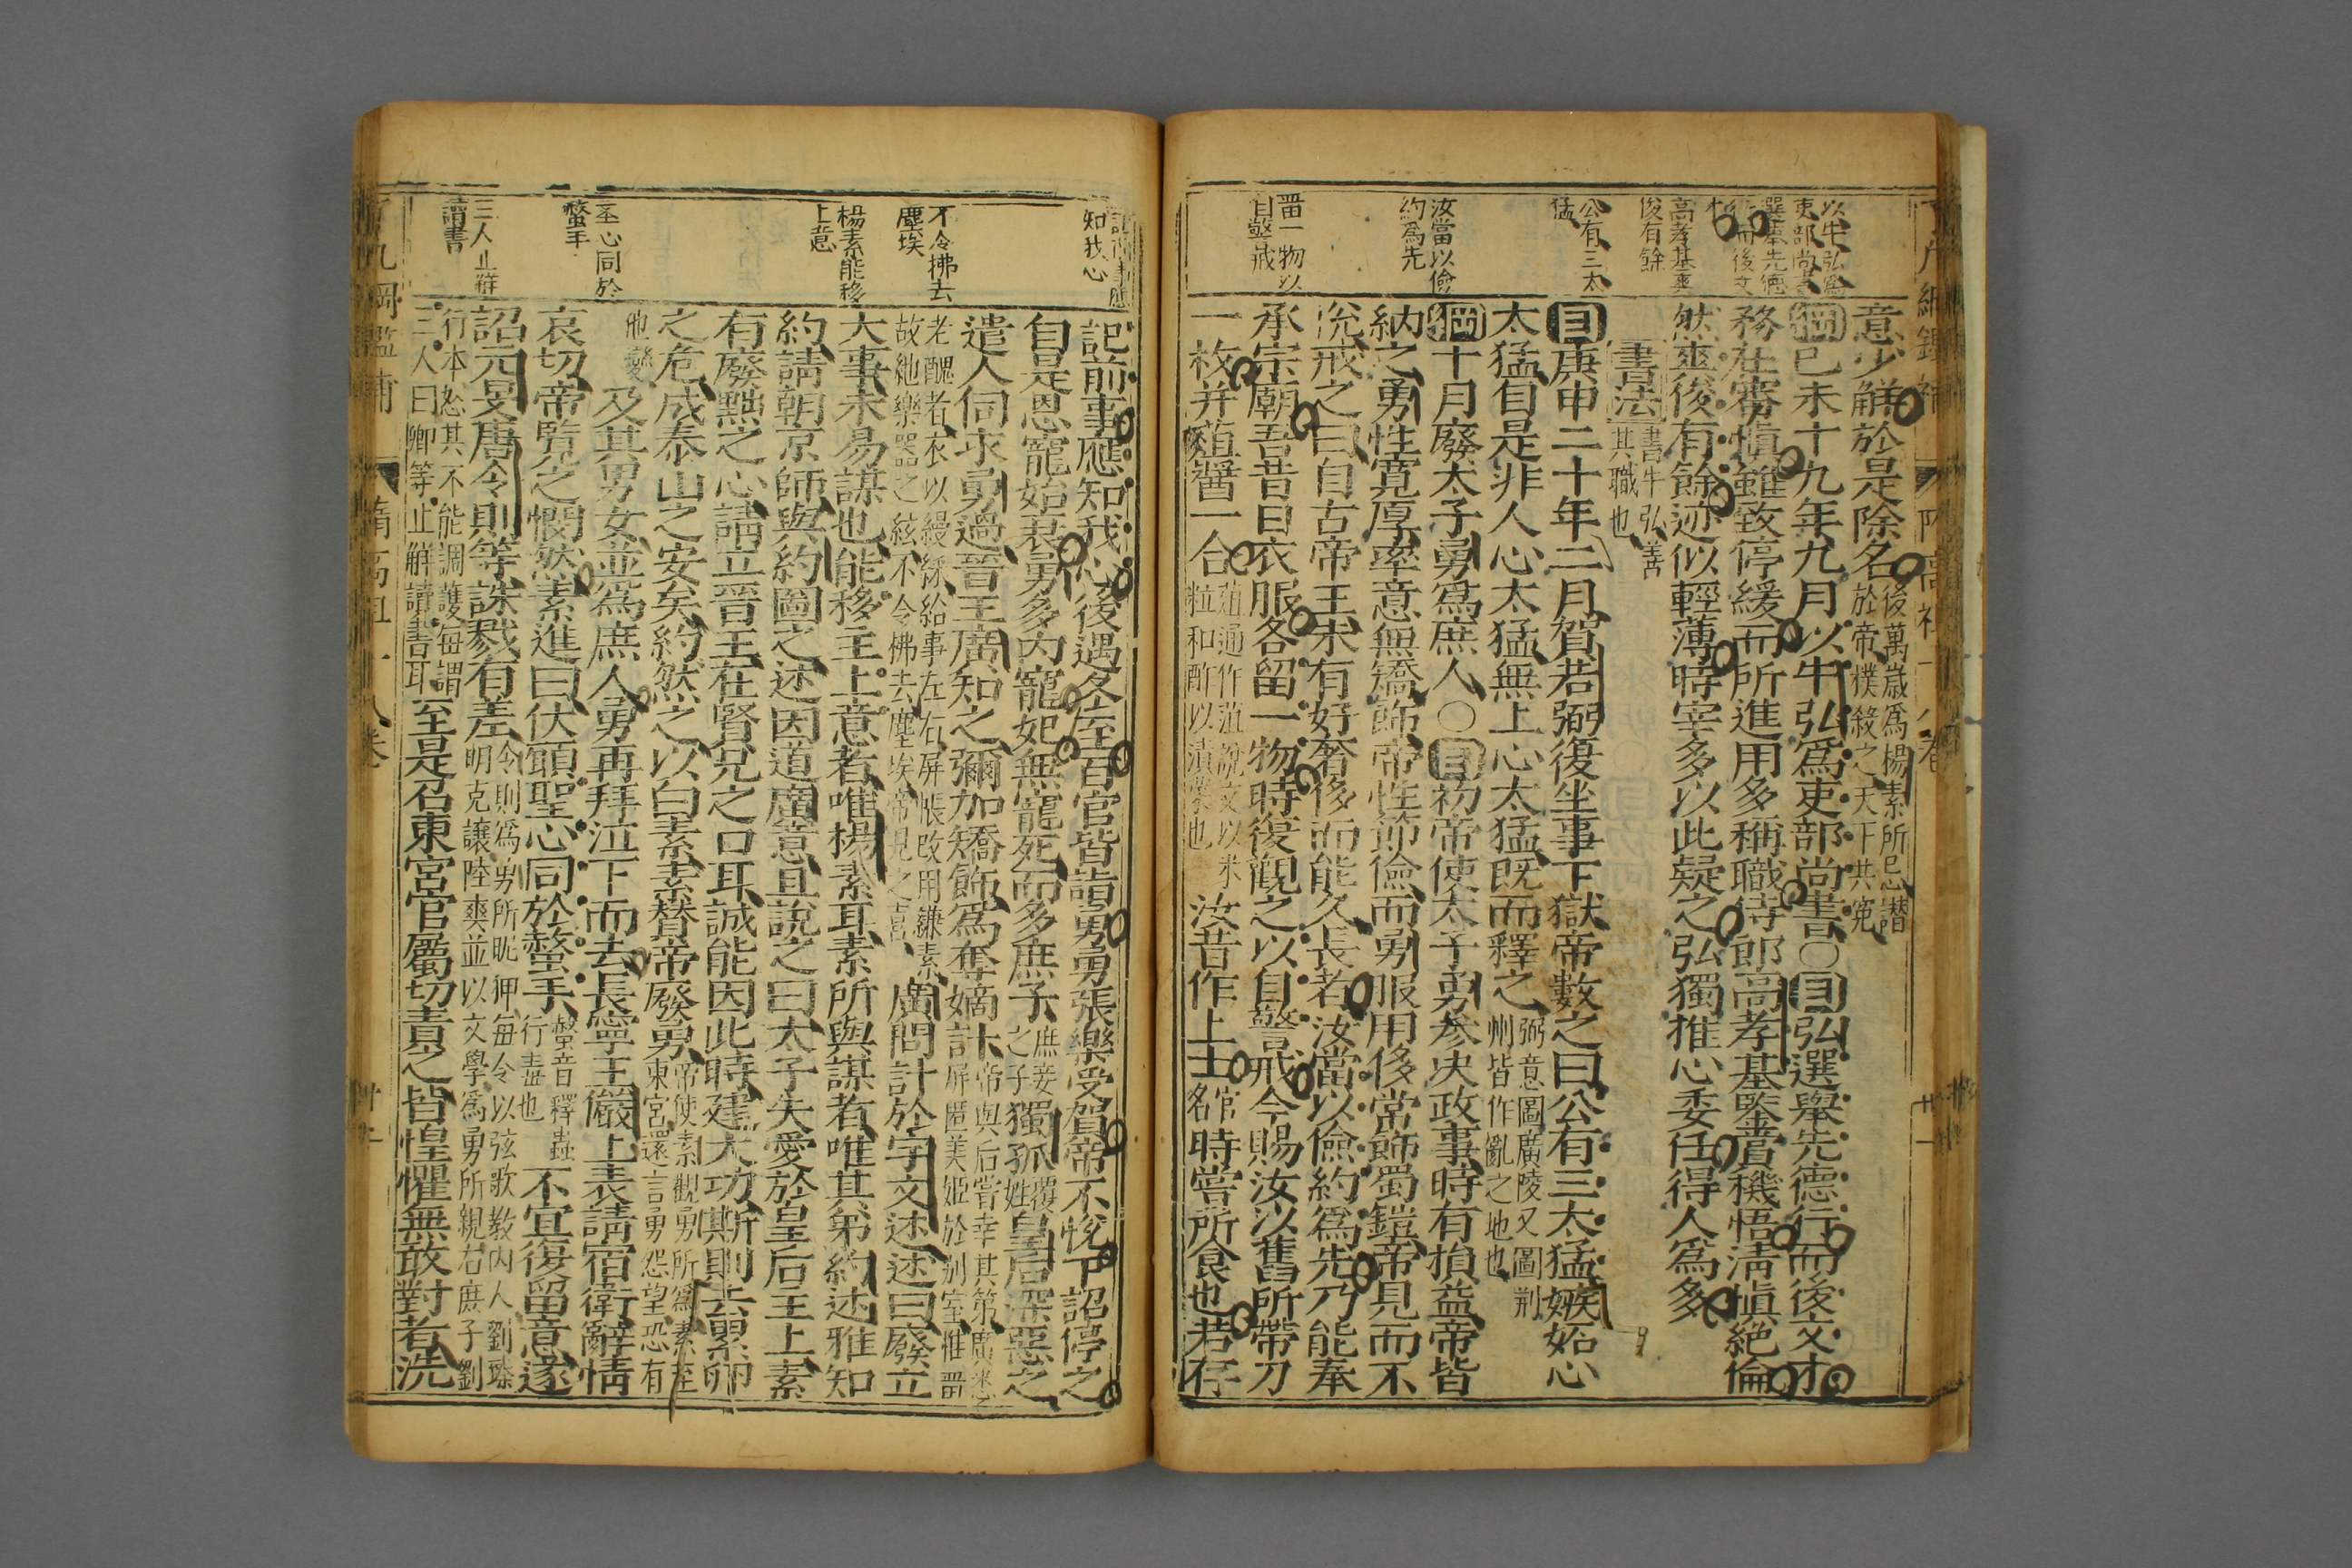 以牛弘爲
吏部尚書
選舉先德
行而後文
才
高孝基爽
俊有餘
公有三太
猛
汝當以儉
約爲先
畱一物以
自警戒
意少觧於是除名後萬歲爲楊素所忌譖
於帝撲殺之天下共寃
綱己未十九年九月以牛弘爲吏部尚書○目弘選舉先德行而後文才
務在審愼雖致停緩而所進用多稱職侍郎高孝基鑒賞機悟淸愼絕倫
然爽俊有餘迹似輕薄時宰多以此疑之弘獨推心委任得人爲多
書法書牛弘善
其職也
目庚申二十年二月賀若弼復坐事下獄帝數之曰公有三太猛嫉妬心
太猛自是非人心太猛無上心太猛既而釋之弼意圖廣陵又圖荆
州皆作亂之地也
綱十月廢太子勇爲庶人○目初帝使太子勇參决政事時有損益帝皆
納之勇性寬厚率意無矯飾帝性節儉而勇服用侈常飾蜀鎧帝見而不
恱戒之曰自古帝王未有好奢侈而能久長者汝當以儉約爲先乃能奉
承宗廟吾昔日衣服各留一物時復觀之以自警戒今賜汝以舊所帶刀
一枚并葅醬一合葅通作菹說文以米
粒和酢以漬菜也汝昔作上士官
名時嘗所食也若存
記前事應
知我心
不令拂去
塵埃
楊素能移
上意
聖心同於
螫手
三人止觧
讀書
記前事應知我心後遇冬至百官皆詣勇勇張樂受賀帝不恱下詔停之
自是恩寵始衰勇多內寵妃無寵死而多庶子庶妾
之子獨孤覆
姓皇后深惡之
遣人伺求勇過晉王廣知之彌加矯飾爲奪嫡計帝與后嘗幸其第廣悉
屏匿美姬於別室惟畱
老醜者衣以縵綵給事左右屏帳改用縑素
故絶樂器之絃不令佛去塵埃帝見之喜廣問計於宇文述述曰廢立
大事未易謀也能移主上意者唯楊素耳素所與謀者唯其弟約述雅知
約請朝京師與約圖之述因道廣意且說之曰太子失愛於皇后主上素
有廢黜之心請立晉王在賢兄之口耳誠能因此時建大功斯則去累卵
之危成泰山之安矣約然之以白素素替帝廢勇帝使素觀勇所爲素至
東宮還言勇怨望恐有
他變及其男女並爲庶人勇再拜泣下而去長寧王儼上表請宿衛辭情
哀切帝覽之憫然素進曰伏願聖心同於螫手螫音釋蟲
行毒也不宜復留意遂
詔元旻唐令則等誅戮有差令則爲勇所昵狎每令以弦歌教內人劉臻
明克讓陸爽並以文學爲勇所親右庶子劉
行本怒其不能調護每謂
三人曰卿等止觧讀書耳至是召東宮官屬切責之皆惶懼無敢對者洗